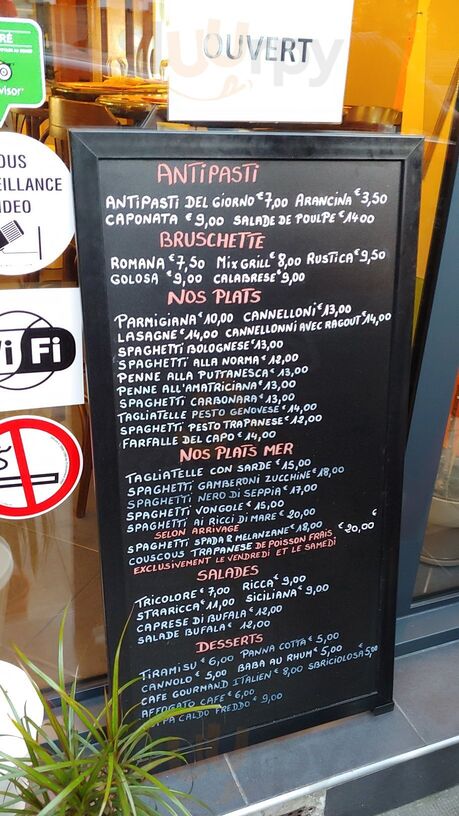 RÉ
visor
OUVERT
OUS
EILLANCE
IDEO
Wi Fi
ANTIPASTI
ANTIPASTI DEL GIORNO €7,00 ARANCINA €3,50
CAPONATA €9,00 SALADE DE POULPE €14,00
BRUSCHETTE
ROMANA €7,50 MIX GRILL €8,00 RUSTICA €9,50
GOLOSA €9,00 CALABRESE €9,00
NOS PLATS
PARMIGIANA €10,00 CANNELLONI €13,00
LASAGNE €14,00 CANNELLONNI AVEC RAGOUT €14,00
SPAGHETTI BOLOGNESE €13,00
SPAGHETTI ALLA NORMA €12,00
PENNE ALLA PUTTANESCA €13,00
PENNE ALL'AMATRICIANA €13,00
SPAGHETTI CARBONARA €13,00
TAGLIATELLE PESTO GENOVESE €14,00
SPAGHETTI PESTO TRAPANESE €12,00
FARFALLE DEL CAPO €14,00
NOS PLATS MER
TAGLIATELLE CON SARDE €15,00
SPAGHETTI GAMBERONI ZUCCHINE €18,00
SPAGHETTI NERO DI SEPPIA €17,00
SPAGHETTI VONGOLE €15,00
SPAGHETTI AI RICCI DI MARE €20,00
SELON ARRIVAGE
SPAGHETTI SPADA E MELANZANE €18,00
COUSCOUS TRAPANESE DE POISSON FRAIS €20,00
EXCLUSIVEMENT LE VENDREDI ET LE SAMEDI
SALADES
TRICOLORE €7,00 RICCA €9,00
STRARICCA €11,00 SICILIANA €9,00
CAPRESE DI BUFALA €12,00
SALADE BUFALA €12,00
DESSERTS
TIRAMISU €6,00 PANNA COTTA €5,00
CANNOLO €5,00 BABA AU RHUM €5,00
CAFE GOURMAND ITALIEN €8,00 SBRICIOLOSA €5,00
AFFOGATO CAFE €6,00
CALDO FREDDO €9,00